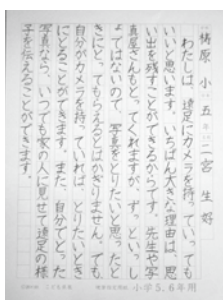 梼原小 五年 二宮 生好
わたしは、遠足にカメラを持っていっても
いいと思います。いちばん大きな理由は、思
い出を残すことができるからです。先生や写
真屋さんもとってくれますが、ずっといっし
ょではないので、写真をとりたいと思ったと
きにとってもらえるとはかぎりません。でも、
自分がカメラを持っていれば、とりたいとき
にとることができます。また、自分でとった
写真なら、いつでも家の人に見せて遠足の様
子を伝えることができます。
小学5、6年用